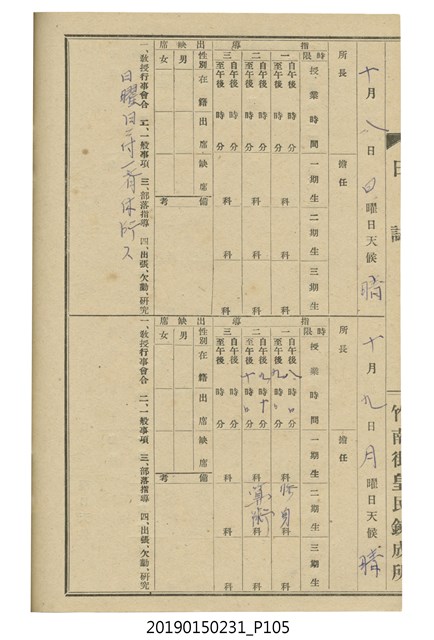 日誌
竹南街皇民鍊成所
十月八日日曜日天候晴
所長
擔任
指導
時限
授業時間
一期生
二期生
三期生
一 自午後 時 分 至午後 時 分 科 科
二 自午後 時 分 至午後 時 分 科 科
三 自午後 時 分 至午後 時 分 科 科
出缺席
性別
在籍
出席
缺席
備考
男
女
一、敎授行事會合 二、一般事項 三、部落指導 四、出張、欠勤、研究
日曜日ニ付一齊休所ス
十月九日月曜日天候晴
所長
擔任
指導
時限
授業時間
一期生
二期生
三期生
一 自午後八時 分 至午後九時 分 科 科
二 自午後九時十分 至午後十時 分 科 算術 科
三 自午後 時 分 至午後 時 分 科 科
出缺席
性別
在籍
出席
缺席
備考
男
女
一、敎授行事會合 二、一般事項 三、部落指導 四、出張、欠勤、研究
20190150231_P105